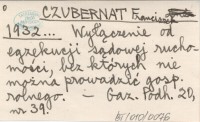 CZUBERNAT Franciszek
1932... Wyłączenie od
egzekucji sądowej rucho-
mości, bez których nie
można prowadzić gosp.
rolnego. — Gaz. Podh. 20,
nr 39.